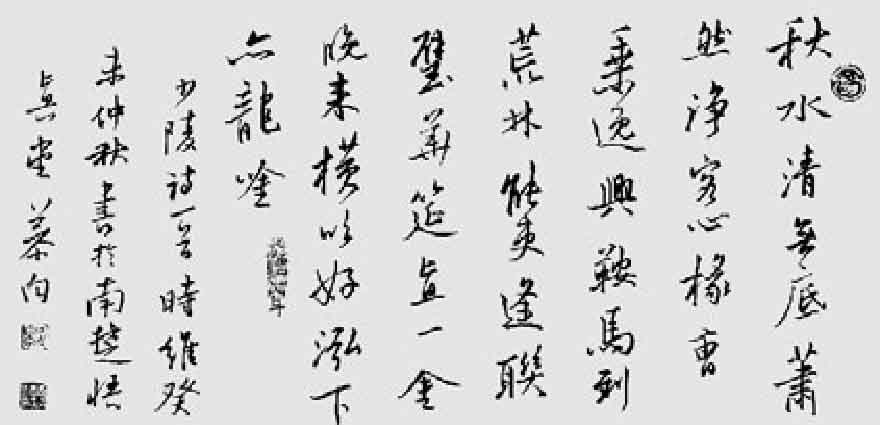 秋水清無底蕭
然淨客心掾曹
乘逸興鞍馬到
荒林能吏逢聯
璧華筵直一金
晚來橫吹好泓下
亦龍吟
少陵詩一首時維癸
未仲秋書於南楚悟
真堂慕向